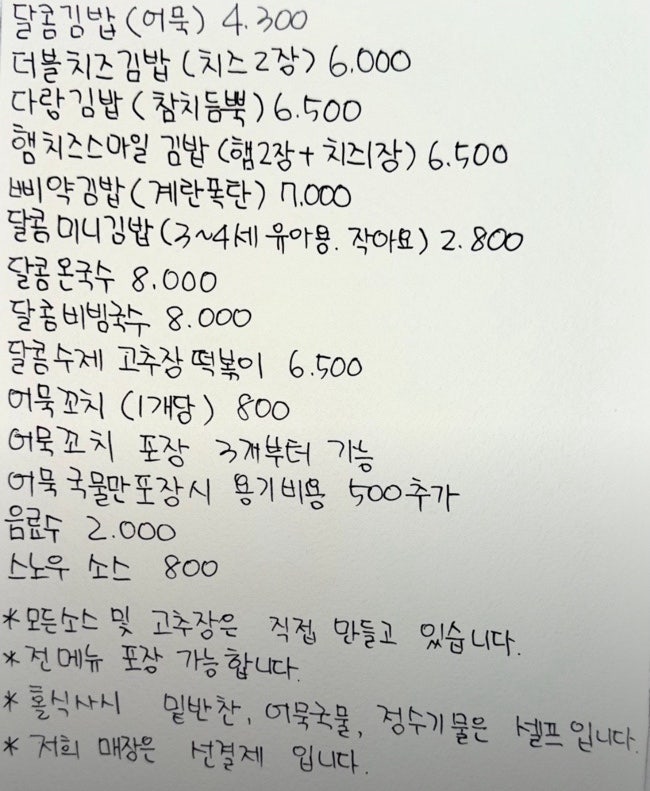 달콤김밥 (어묵) 4.300
더블치즈김밥 (치즈2장) 6.000
다랑김밥 (참치듬뿍) 6.500
햄치즈스마일 김밥 (햄2장+치즈1장) 6.500
삐약김밥 (계란폭탄) 7.000
달콤미니김밥 (3~4세 유아용. 작아요) 2.800
달콤온국수 8.000
달콤비빔국수 8.000
달콤수제 고추장떡볶이 6.500
어묵꼬치 (1개당) 800
어묵꼬치 포장 3개부터 가능
어묵국물만포장시 용기비용 500추가
음료수 2.000
스노우 소스 800
*모든소스 및 고추장은 직접 만들고 있습니다.
*전메뉴 포장 가능합니다.
* 홀식사시 밑반찬, 어묵국물, 정수기물은 셀프입니다.
* 저희 매장은 선결제 입니다.